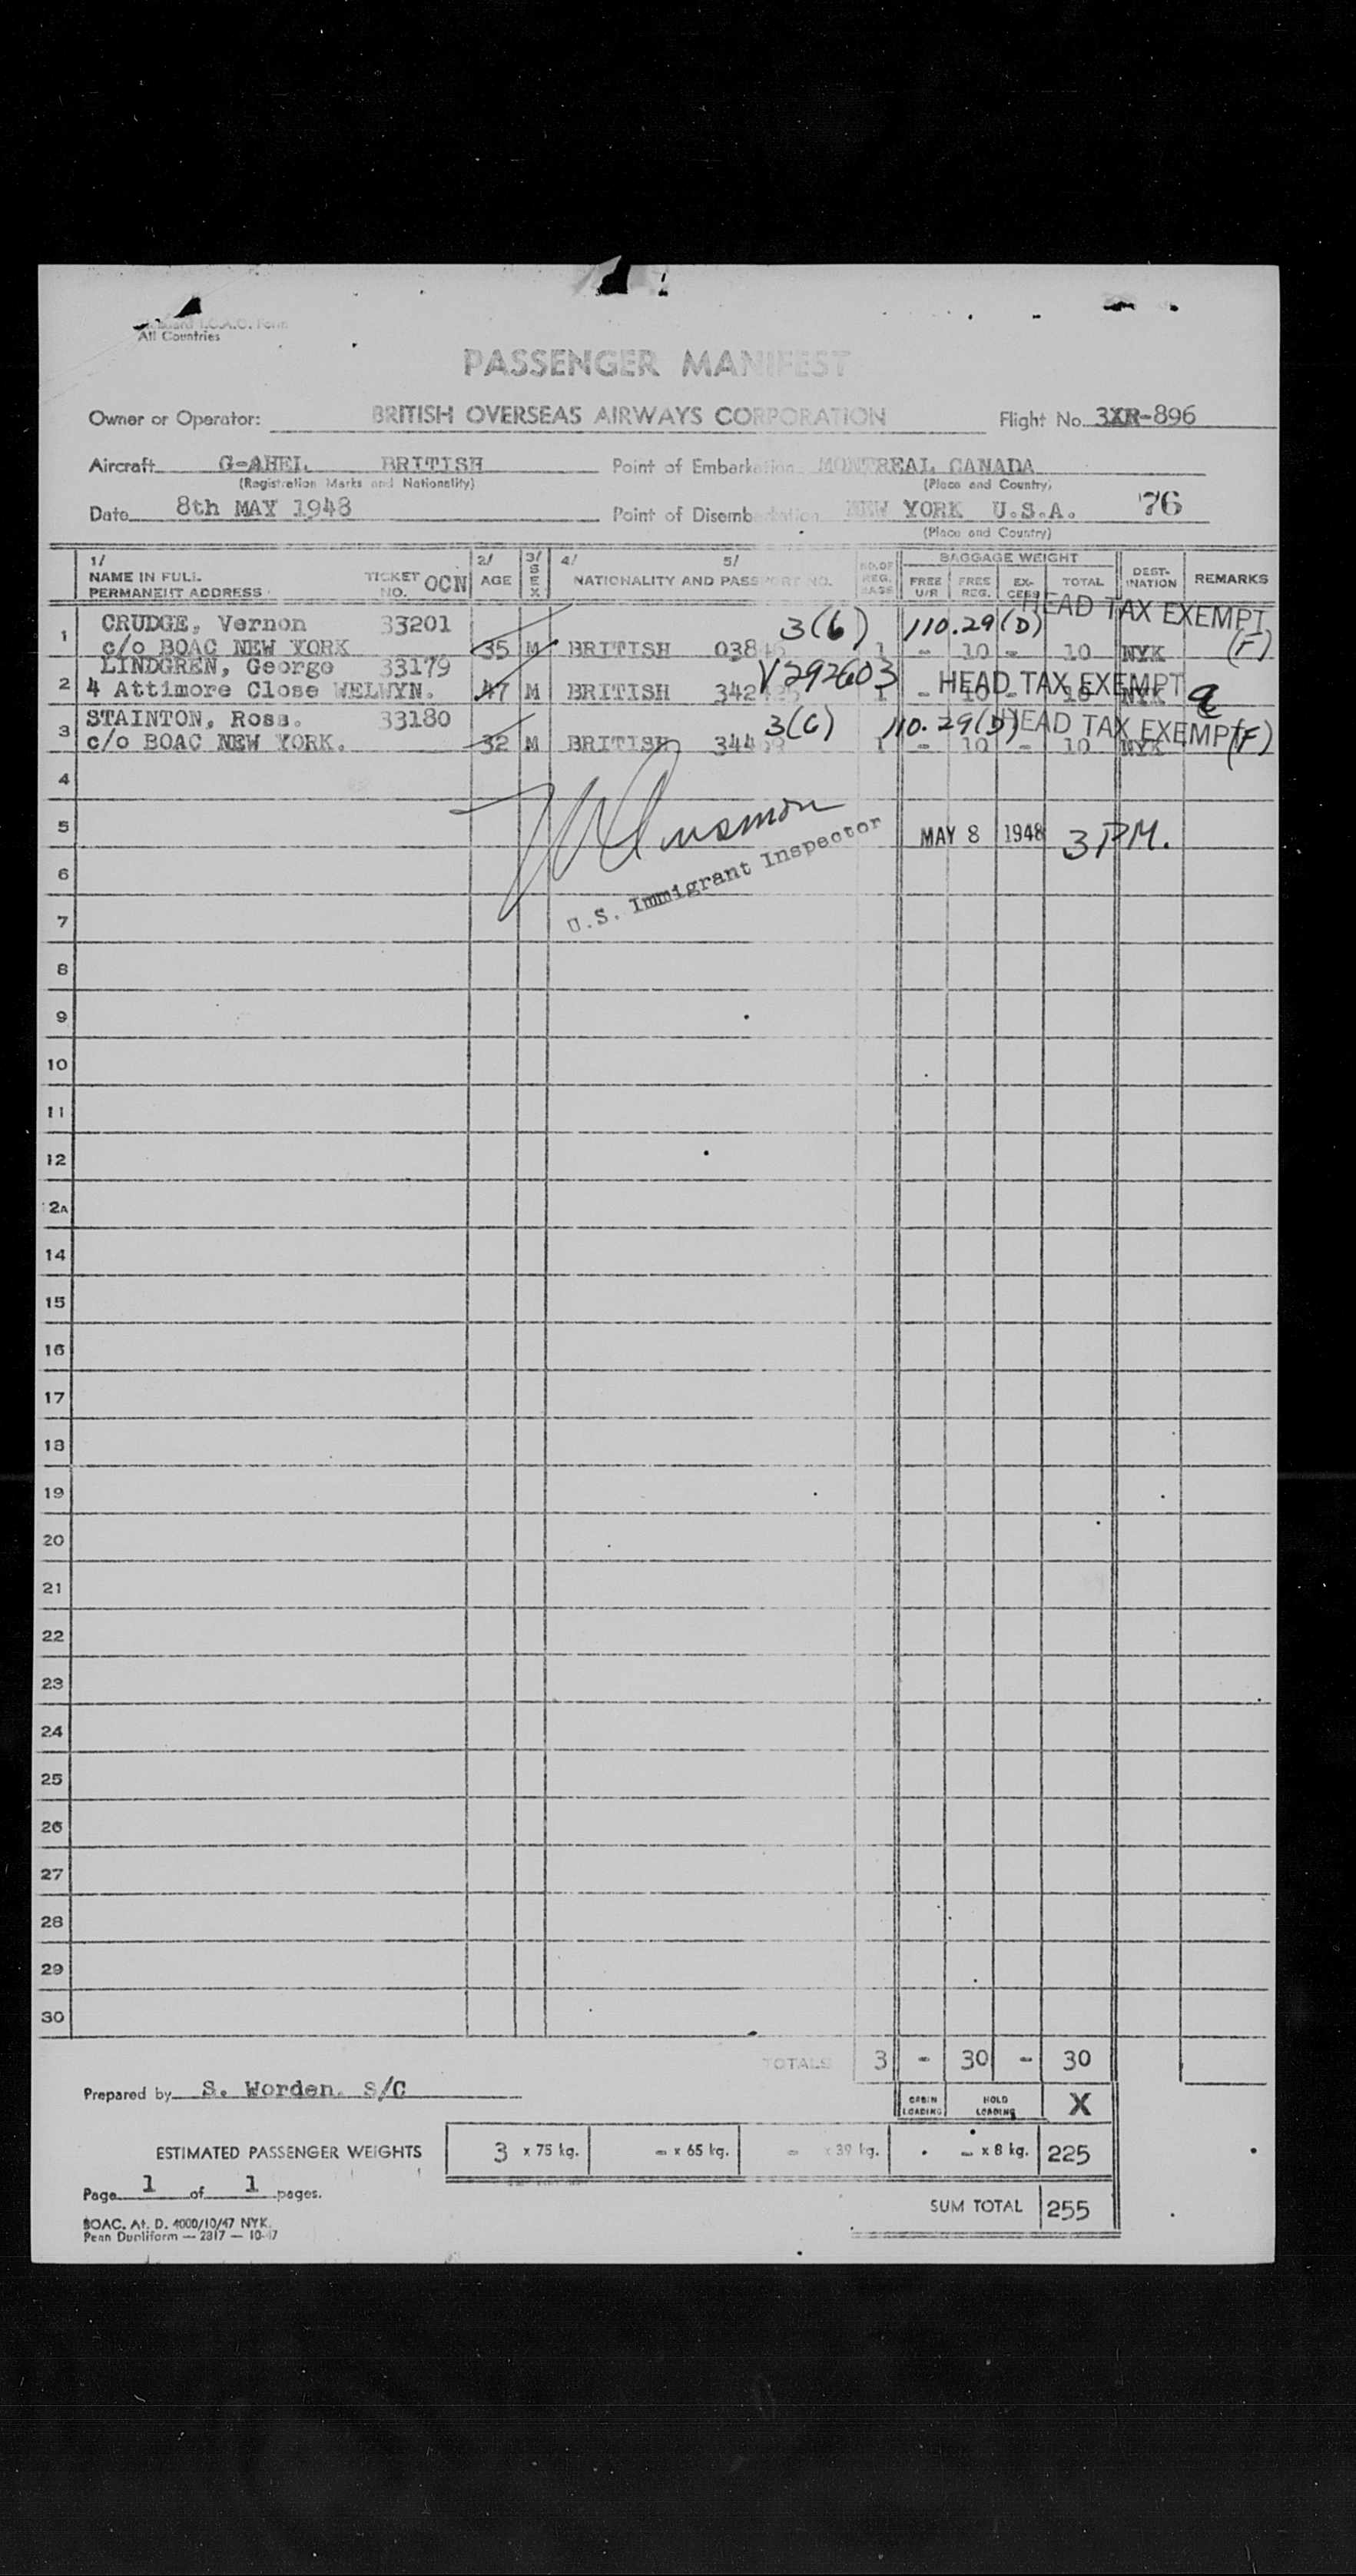 All Countries
PASSENGER MANIFEST
Owner or Operator: BRITISH OVERSEAS AIRWAYS CORPORATION Flight No. 3XR-896
Aircraft G-AHEL BRITISH Point of Embarkation MONTREAL CANADA
(Registration Marks and Nationality) (Place and Country)
Date 8th MAY 1948 Point of Disembarkation NEW YORK U.S.A. 76
(Place and Country)
1/ 2/ 3/ 4/ 5/ NO. OF BAGGAGE WEIGHT
NAME IN FULL TICKET OCN AGE SEX NATIONALITY AND PASSPORT NO. REG. FREE FREE EX- TOTAL DEST- REMARKS
PERMANENT ADDRESS NO. U/R REG. CESS INATION
HEAD TAX EXEMPT
CRUDGE, Vernon 33201 3(6) 110.29(D)
1 c/o BOAC NEW YORK 35 M BRITISH 038 1 - 10 - 10 NYK (F)
LINDGREN, George 33179 V292603 HEAD TAX EXEMPT
2 4 Attimore Close WELWYN. 47 M BRITISH 342 1 - 10 - 10 NYK
STAINTON, Ross. 33180 3(6) 110.29(D) HEAD TAX EXEMPT (F)
3 c/o BOAC NEW YORK. 32 M BRITISH 344 1 - 10 - 10 NYK
4
5 MAY 8 1948 3 P.M.
U.S. Immigrant Inspector
6
7
8
9
10
11
12
12A
14
15
16
17
18
19
20
21
22
23
24
25
26
27
28
29
30
TOTALS 3 - 30 - 30
Prepared by S. Worden. S/C CABIN LOADING HOLD LOADING X
ESTIMATED PASSENGER WEIGHTS 3 x 75 kg. - x 65 kg. - x 39 kg. - x 8 kg. 225
Page 1 of 1 pages.
SUM TOTAL 255
BOAC. At. D. 4000/10/47 NYK.
Penn Dupliform — 2817 — 10-47